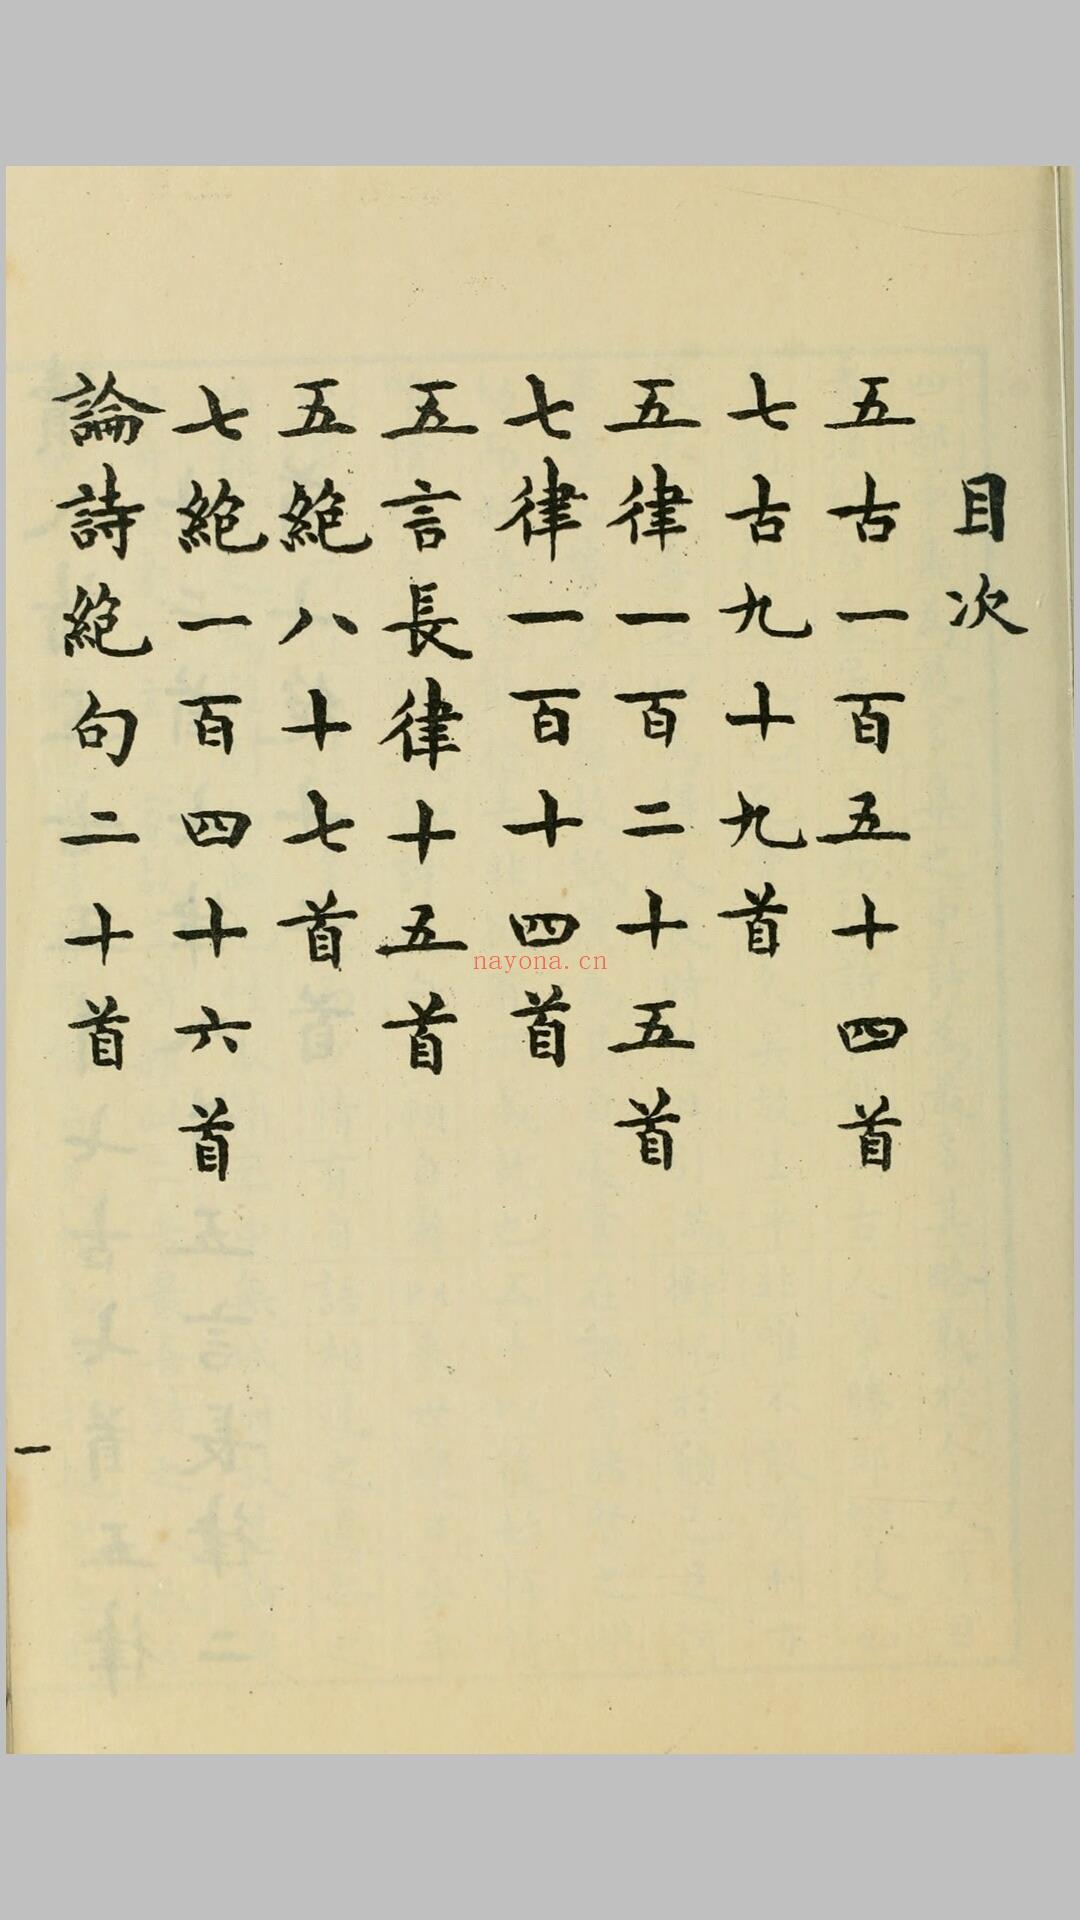 目次
五古一百五十四首
七古九十九首
五律一百二十五首
七律一百十四首
五言長律十五首
五絶八十七首
七絶一百四十六首
論詩絶句二十首
一
nayona.cn